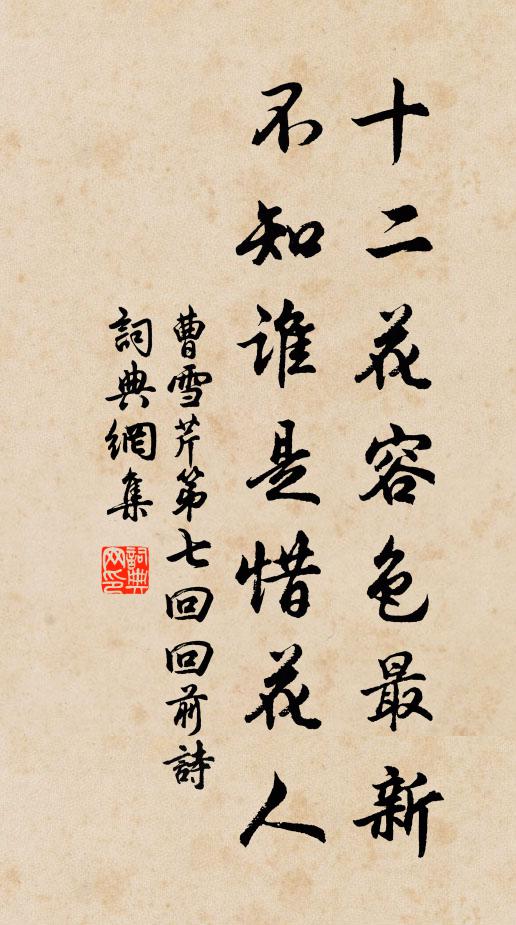 十二花容色最新
不知谁是惜花人
曹雪芹第七回回前詩
詞典網集
詞典網印